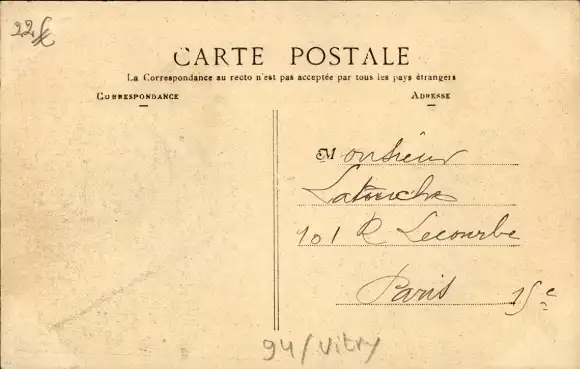 22
CARTE POSTALE
La Correspondance au recto n'est pas acceptée par tous les pays étrangers
CORRESPONDANCE
ADRESSE
Monsieur
Latouche
101 R Lecourbe
Paris 15e
94/Vitry